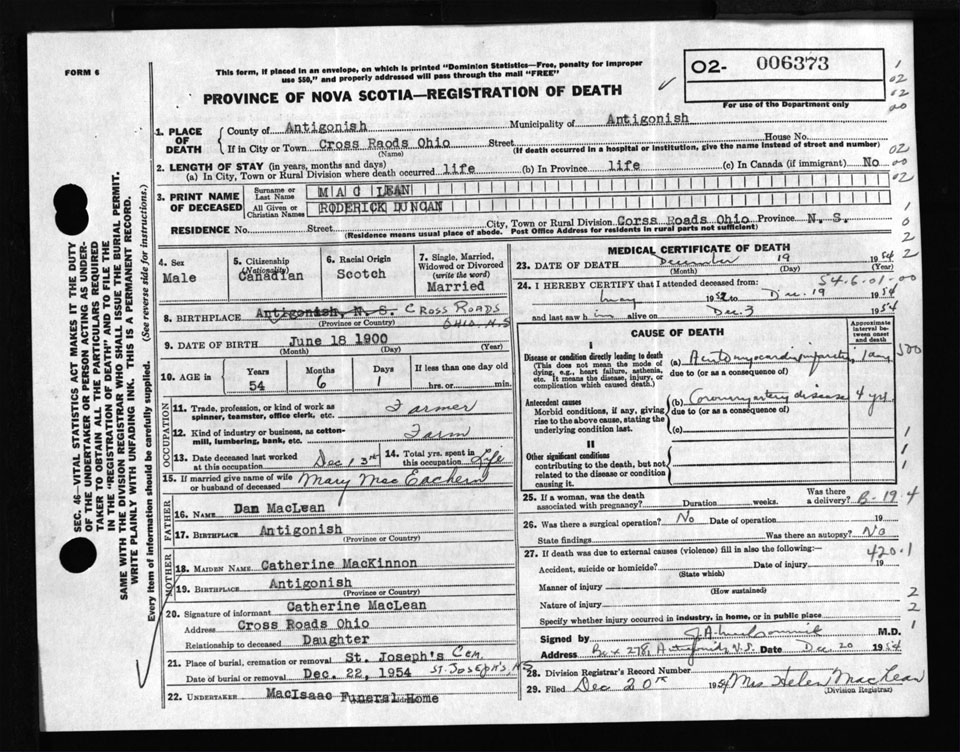 FORM 6
This form, if placed in an envelope, on which is printed "Dominion Statistics—Free, penalty for improper
use $50," and properly addressed will pass through the mail "FREE"
PROVINCE OF NOVA SCOTIA—REGISTRATION OF DEATH
O2- 006373
For use of the Department only
1. PLACE OF DEATH
County of Antigonish Municipality of Antigonish
If in City or Town Cross Raods Ohio Street House No.
(Name) (If death occurred in a hospital or institution, give the name instead of street and number)
2. LENGTH OF STAY (in years, months and days)
(a) In City, Town or Rural Division where death occurred life (b) In Province life (c) In Canada (if immigrant) No
3. PRINT NAME OF DECEASED
Surname or Last Name MAC LEAN
All Given or Christian Names RODERICK DUNCAN
RESIDENCE No. Street City, Town or Rural Division Corss Roads Ohio Province N. S.
(Residence means usual place of abode. Post Office Address for residents in rural parts not sufficient)
4. Sex
Male
5. Citizenship (Nationality)
Canadian
6. Racial Origin
Scotch
7. Single, Married, Widowed or Divorced (write the word)
Married
8. BIRTHPLACE Antigonish, N. S. CROSS ROADS
OHIO. N.S
(Province or Country)
9. DATE OF BIRTH June 18 1900
(Month) (Day) (Year)
10. AGE in
Years 54
Months 6
Days 1
If less than one day old
hrs. or min.
OCCUPATION
11. Trade, profession, or kind of work as spinner, teamster, office clerk, etc. Farmer
12. Kind of industry or business, as cotton-mill, lumbering, bank, etc. Farm
13. Date deceased last worked at this occupation Dec 13th
14. Total yrs. spent in this occupation Life
15. If married give name of wife or husband of deceased Mary Mac Eachern
FATHER
16. NAME Dan MacLean
17. BIRTHPLACE Antigonish
(Province or Country)
MOTHER
18. MAIDEN NAME Catherine MacKinnon
19. BIRTHPLACE Antigonish
(Province or Country)
20. Signature of informant Catherine MacLean
Address Cross Roads Ohio
Relationship to deceased Daughter
21. Place of burial, cremation or removal St. Joseph's Cem.
Date of burial or removal Dec. 22, 1954 ST. JOSEPH'S, N.S
22. UNDERTAKER MacIsaac Funeral Home
MEDICAL CERTIFICATE OF DEATH
23. DATE OF DEATH December 19 1954
(Month) (Day) (Year)
24. I HEREBY CERTIFY that I attended deceased from: 54-6-01-00
May 1952 to Dec. 19 1954
and last saw him alive on Dec. 3 1954
CAUSE OF DEATH
Approximate interval between onset and death
I
Disease or condition directly leading to death
(This does not mean the mode of dying, e.g., heart failure, asthenia, etc. It means the disease, injury, or complication which caused death.)
(a) Acute myocardial 1 day
due to (or as a consequence of)
Antecedent causes
Morbid conditions, if any, giving rise to the above cause, stating the underlying condition last.
(b) Coronary artery disease 4 yrs.
due to (or as a consequence of)
(c)
II
Other significant conditions
contributing to the death, but not related to the disease or condition causing it.
25. If a woman, was the death associated with pregnancy? Duration weeks. Was there a delivery? B-19 4
26. Was there a surgical operation? No Date of operation 19
State findings Was there an autopsy? No
27. If death was due to external causes (violence) fill in also the following:— 420.1
Accident, suicide or homicide? Date of injury 19
(State which)
Manner of injury
(How sustained)
Nature of injury
Specify whether injury occurred in industry, in home, or in public place
Signed by M.D.
Address Box 278, Antigonish, N.S. Date Dec 20 1954
28. Division Registrar's Record Number
29. Filed Dec 20th 1954 Mrs Helen MacLean
(Division Registrar)
SEC. 46—VITAL STATISTICS ACT MAKES IT THE DUTY
OF THE UNDERTAKER OR PERSON ACTING AS UNDER-
TAKER TO OBTAIN ALL THE PARTICULARS REQUIRED
IN THE "REGISTRATION OF DEATH" AND TO FILE THE
SAME WITH THE DIVISION REGISTRAR WHO SHALL ISSUE THE BURIAL PERMIT.
WRITE PLAINLY WITH UNFADING INK. THIS IS A PERMANENT RECORD.
Every item of information should be carefully supplied. (See reverse side for instructions.)